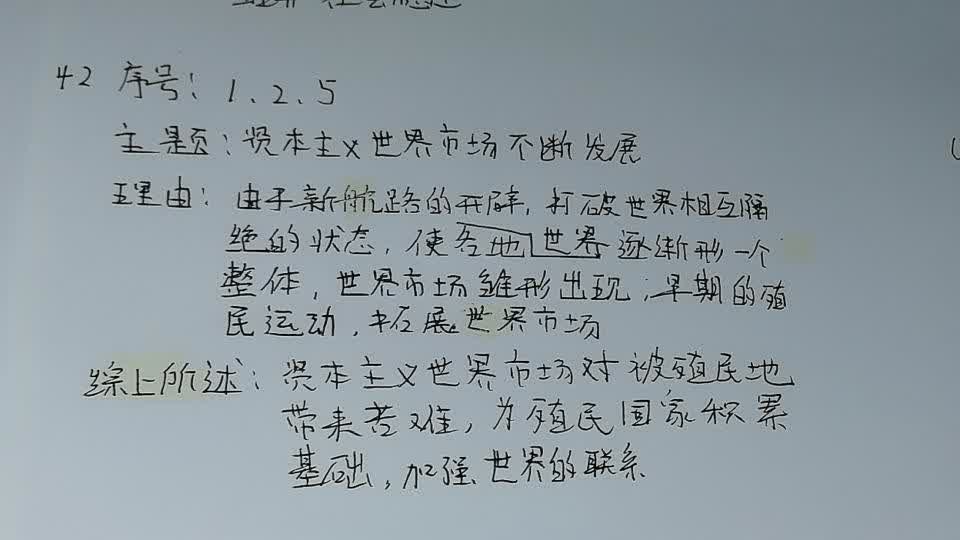 42 序号：1、2、5
主题：资本主义世界市场不断发展
理由：由于新航路的开辟，打破世界相互隔
绝的状态，使各地世界逐渐形一个
整体，世界市场雏形出现；早期的殖
民运动，拓展世界市场
综上所述：资本主义世界市场对被殖民地
带来苦难，为殖民国家积累
基础，加强世界的联系